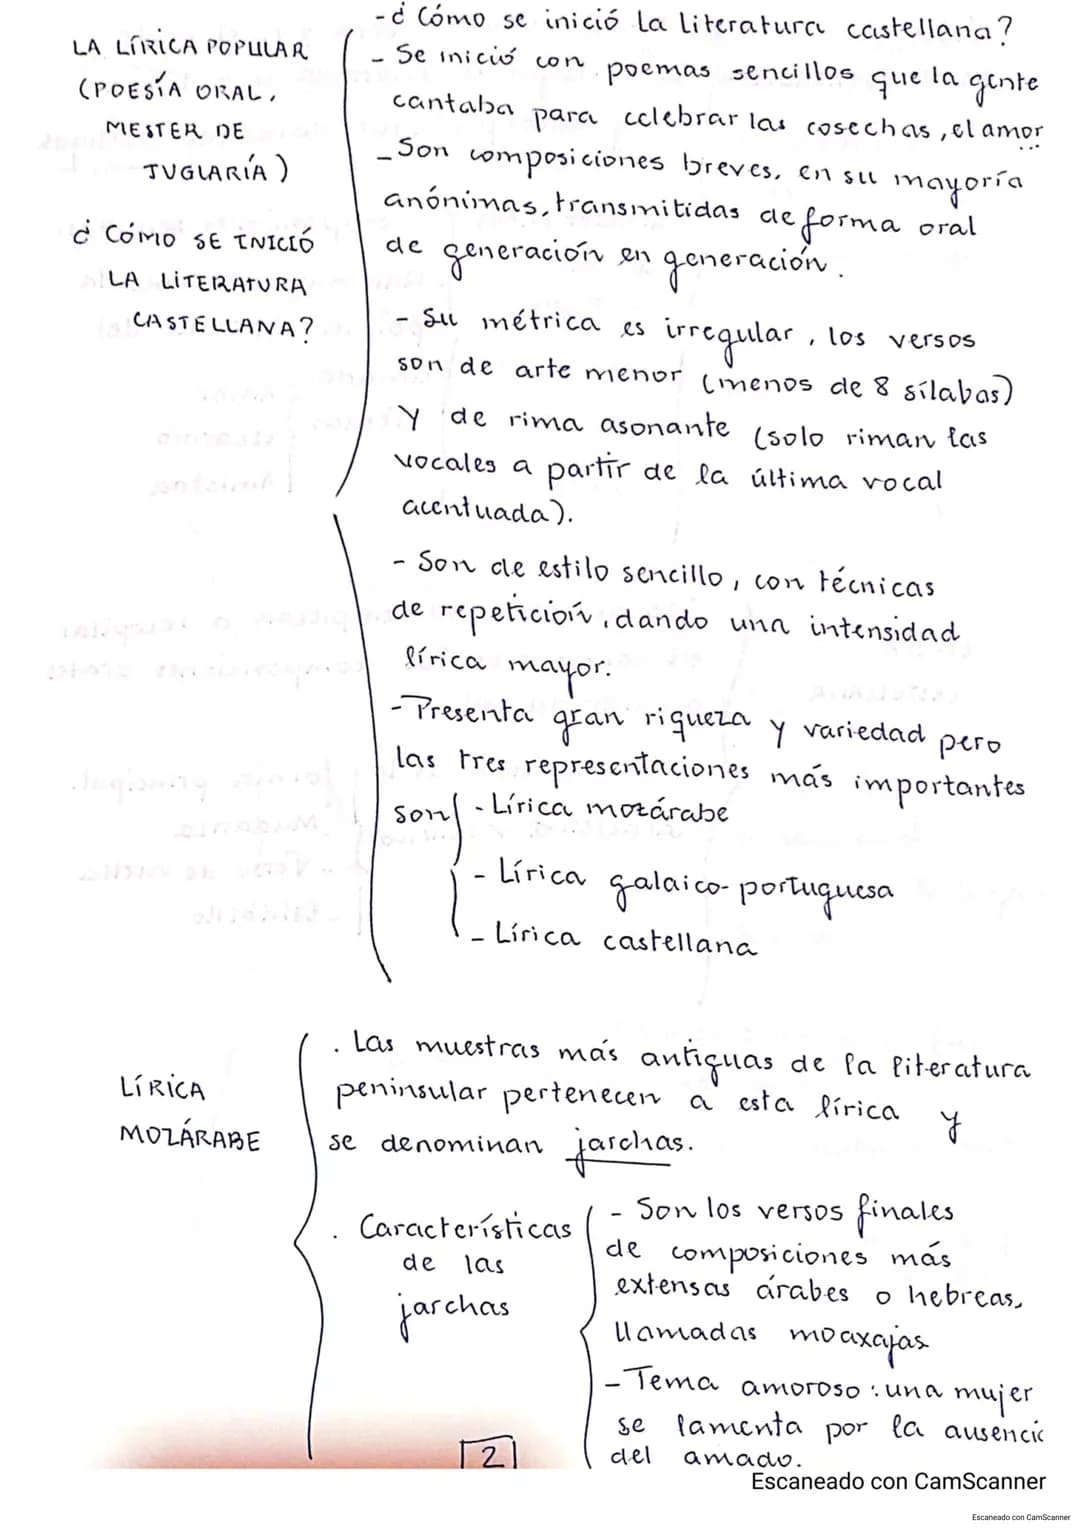 LA LÍRICA POPULAR
(POESÍA ORAL,
MESTER DE
JUGLARÍA)
¿CÓMO SE INICIÓ
LA LITERATURA
CASTELLANA?
-¿Cómo se inició la Literatura castellana?
- Se inició con poemas sencillos que la gente
cantaba para celebrar las cosechas, el amor
...
- Son composiciones breves, en su mayoría
anónimas, transmitidas de forma oral
de generación en generación.
- Su métrica es irregular, los versos
son de arte menor (menos de 8 sílabas)
Y de rima asonante (solo riman las
vocales a partir de la última vocal
acentuada).
- Son de estilo sencillo, con técnicas
de repetición, dando una intensidad
lírica mayor.
- Presenta gran riqueza y variedad pero
las tres representaciones más importantes
son
- Lírica mozárabe
- Lírica galaico-portuguesa
- Lírica castellana
LÍRICA
MOZÁRABE
. Las muestras más antiguas de la literatura
peninsular pertenecen a esta lírica y
se denominan jarchas.
. Características
de las
jarchas
- Son los versos finales
de composiciones más
extensas árabes o hebreas,
llamadas moaxajas
- Tema amoroso: una mujer
se lamenta por la ausenci
del amado.
2
Escaneado con CamScanner
Escaneado con CamScanner